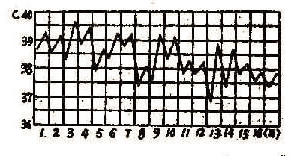 C. 40
39
38
37
36
1. 2 3 4 5 6 7 8 9 10 11 12 13 14 15 16